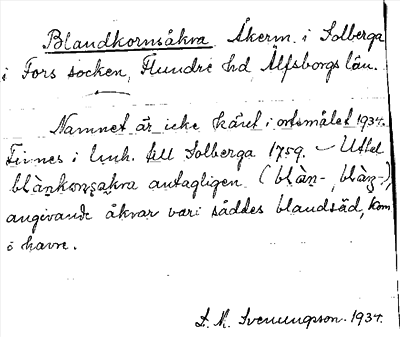 Blandkornsåkra. Åkerm. i Solberga
i Fors socken, Flundre hd Älfsborgs län.
Namnet är icke känt i ortsmålet 1934.
Finnes i hnh. till Solberga 1759. – Uttal
antagligen (blàn-,
angivande åkrar vari såddes blandsäd, korn
o havre.
S. M. Svenungsson. 1934.